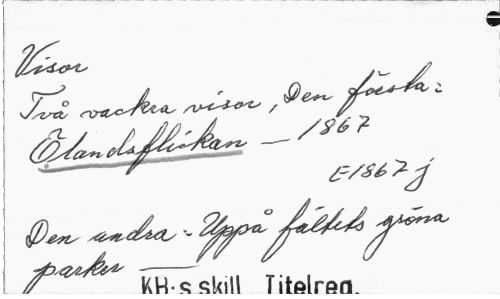 Visor
Två vackra visor, Den första:
Ölandsflickan — 1867
E1867 j
Den andra: Uppå fältets gröna
parker —
KB:s skill. Titelreg.